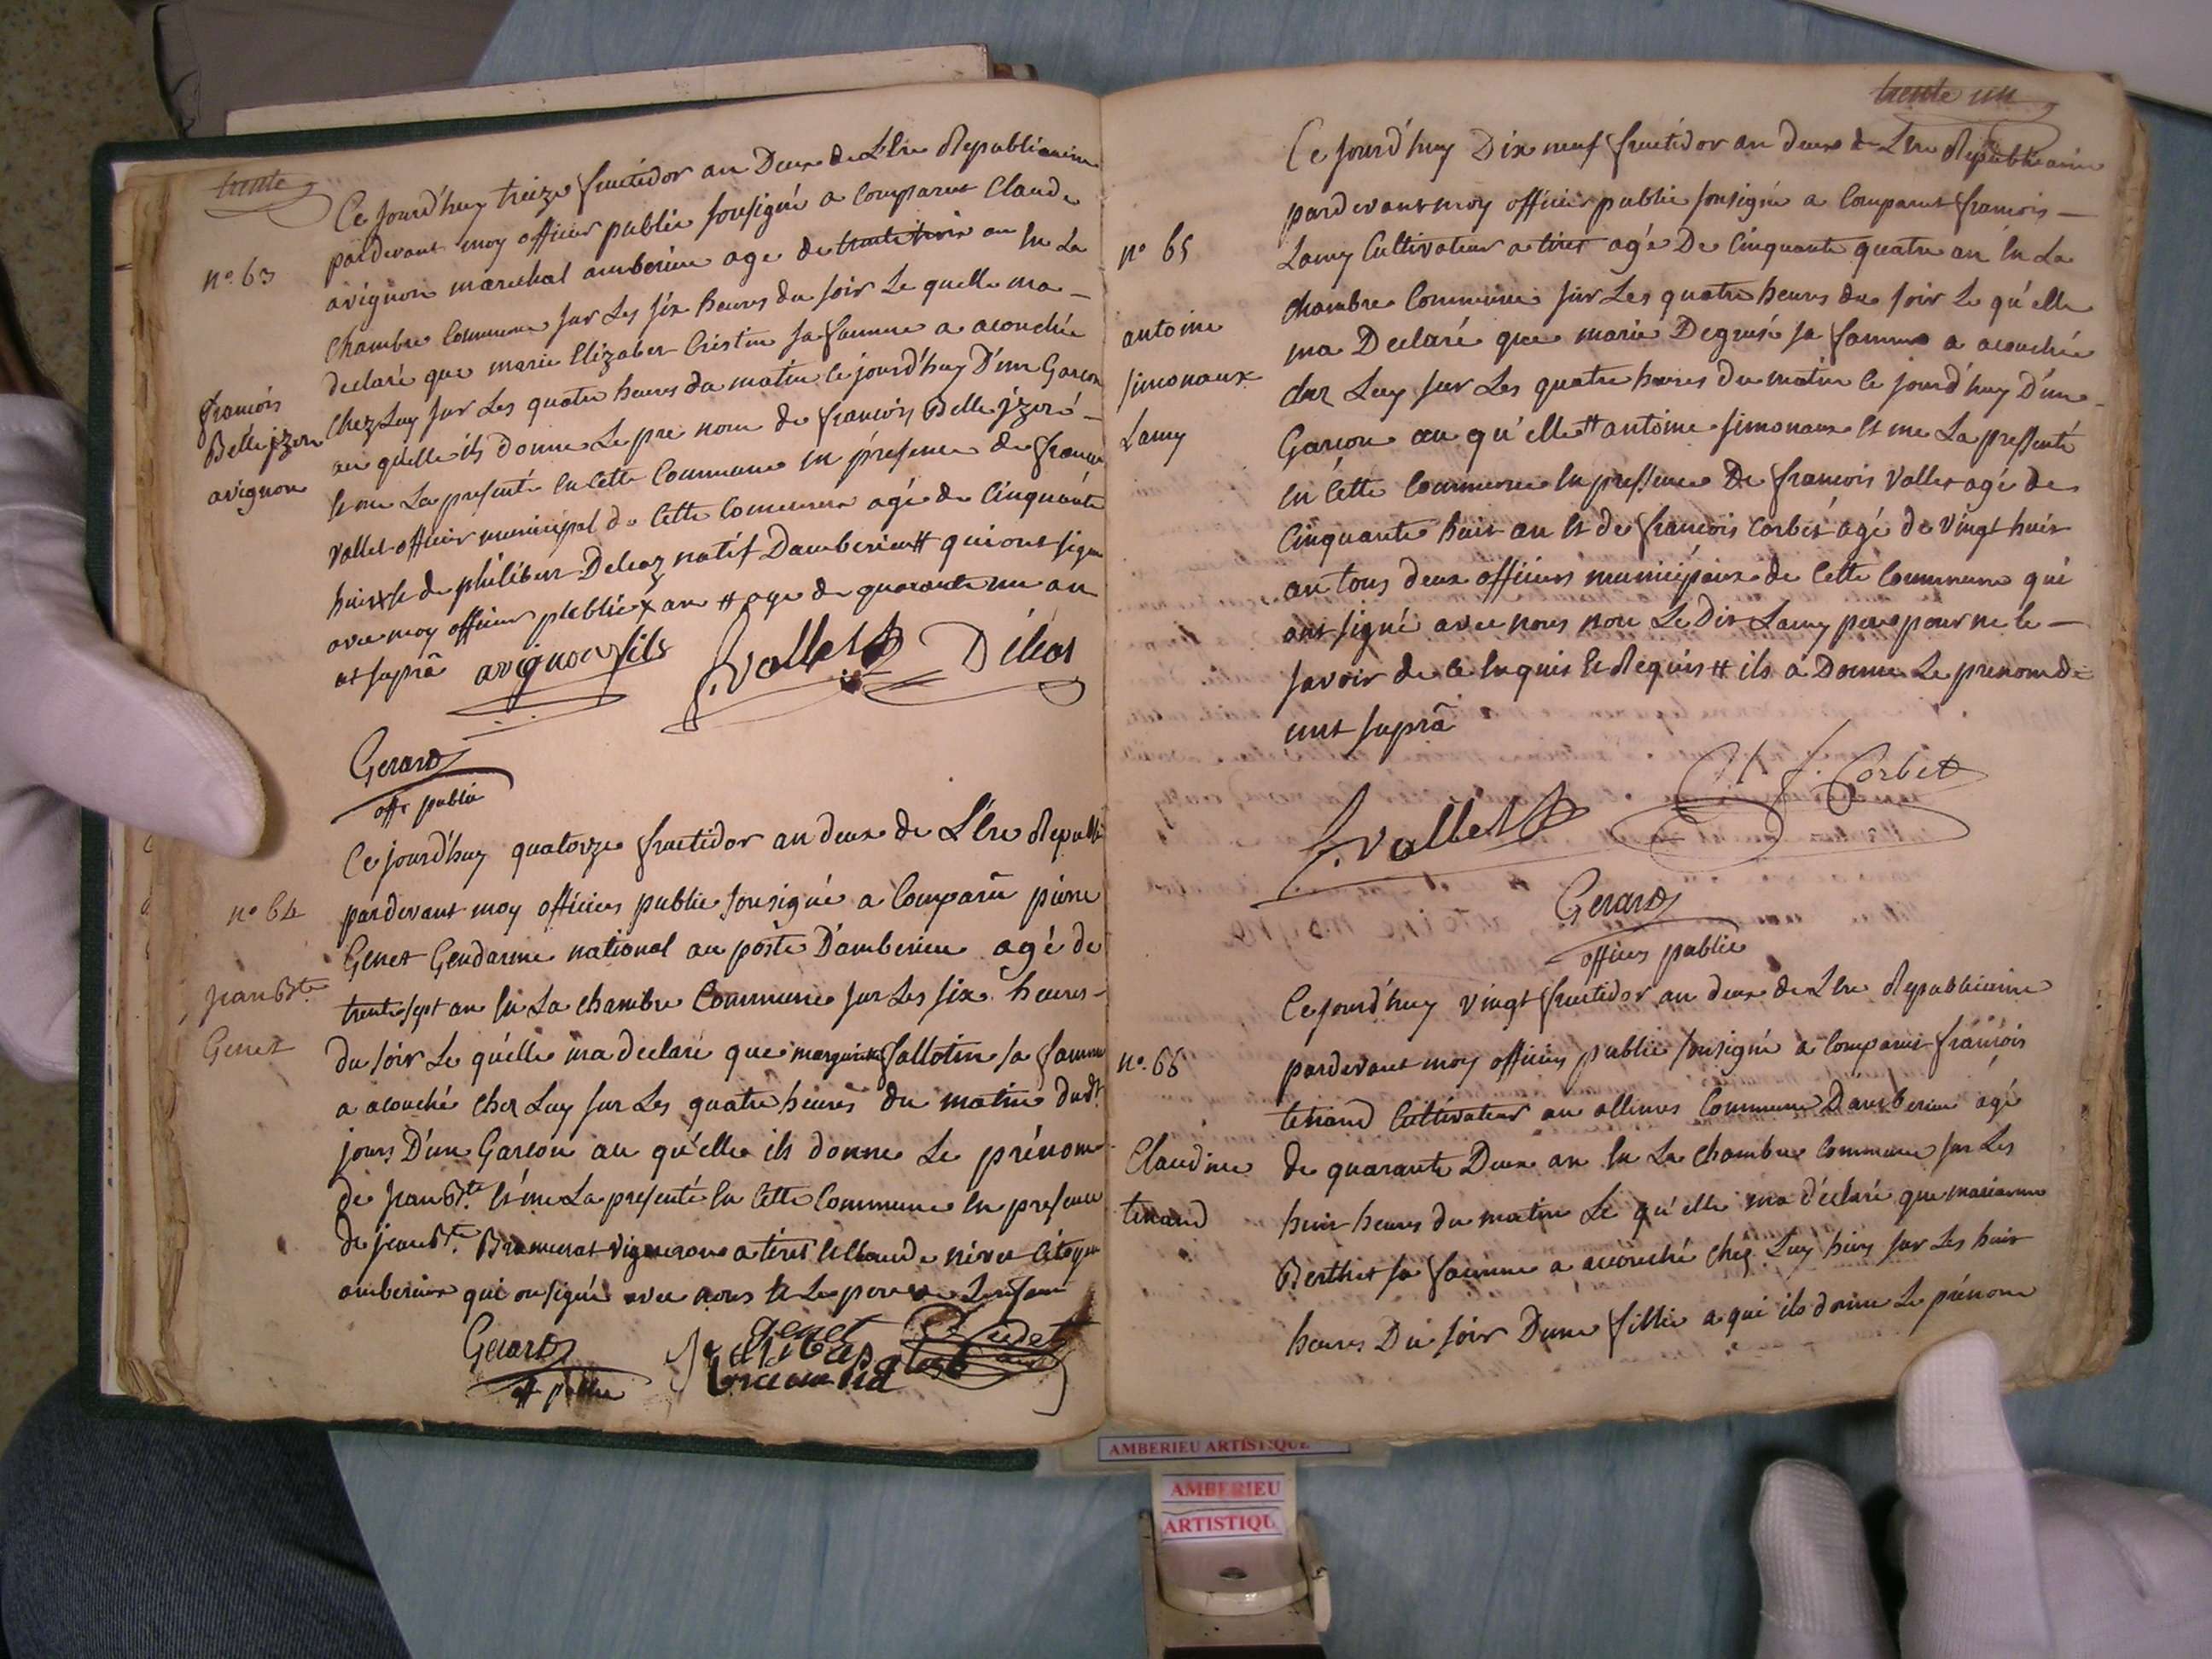 trente
Ce jourd'huy treize fructidor an Deux de L'Ere Republicaine
pardevant moy officier public sousigné a Comparut Claude
n° 63
avignon marechal amberieu age de trente trois an En La
Chambre Commune sur Les six heures du soir Le quelle ma
declaré que marie Elizabet Cristin sa famme a acouchée
françois
Belle jzoré
avignon
Chez Luy sur Les quatre heures du matin Ce jourd'huy D'un Garçon
au quelle ils donne Le pre nom de françois Belle jzoré
Et me La presenté En Cette Commune En présence de françois
vallet officier municipal de Cette Commune agé de Cinquante
huit x Et de philibert Deleaz natif Damberieu # qui ont signé
avec moy officier publié x an # age de quarante un an
ut suprâ avignon fils F. vallet Déléaz
Gerard
offr public
Ce jourd'huy quatorze fructidor an deux de L'Ere Republi
n° 64
pardevant moy officier public sousigné a Comparu pierre
Genet Gendarme national au poste D'amberieu agé de
jean Bte
Genet
trente sept an En La chambre Commune sur Les six heures
du soir Le qu'elle ma declaré que margueritte fallotin sa famme
a acouché chez Luy sur Les quatre heures du matin dudt
jours D'un Garçon au qu'elle ils donne Le prénom
de jean Bte Et me La presenté En Cette Commune En presence
de jean Bte Bramerat vigneron a tiret Et Claude nivet Citoyen
amberieu qui on signé avec nous Et Le pere de Lenfant
Gerard genet
off public
trente un
Ce jourd'huy Dix neuf fructidor an deux de L'Ere Republicaine
pardevant moy officier public sousigné a Comparut françois
n° 65
Lamy Cultivateur a tiret agé De Cinquante quatre an En La
chambre Commune sur Les quatre heures du soir Le qu'elle
antoine
simonaux
Lamy
ma Declaré que marie Degrusé sa famme a acouchée
chez Luy sur Les quatre heures du matin Ce jourd'huy D'un
Garcon au qu'elle # antoine simonaux Et me La pressenté
En Cette Commune En pressence De françois vallet agé de
Cinquante huit an Et de françois Corbet agé de vingt huit
an tous deux officiers municipaux de Cette Commune qui
ont signé avec nous non Le Dit Lamy pere pour ne le
savoir de ce Enquis Et Requis # ils a Donne Le prenom de
unt suprâ
F. vallet f. Corbet
Gerard
officier public
Ce jourd'huy vingt fructidor an deux de L'Ere Republicaine
n° 66
pardevant moy officier public sousigné a Comparut françois
tenand Cultivateur au allimes Commune D'amberieu agé
Claudine
tenand
de quarante Deux an En La chambre Commune sur Les
huit heures du matin Le qu'elle ma déclaré que marianne
Berthet sa famme a accouché chez Luy hiery sur Les huit
heures Du soir Dune fillie a qui ils donne Le prénom
AMBERIEU ARTISTIQUE
AMBERIEU
ARTISTIQU